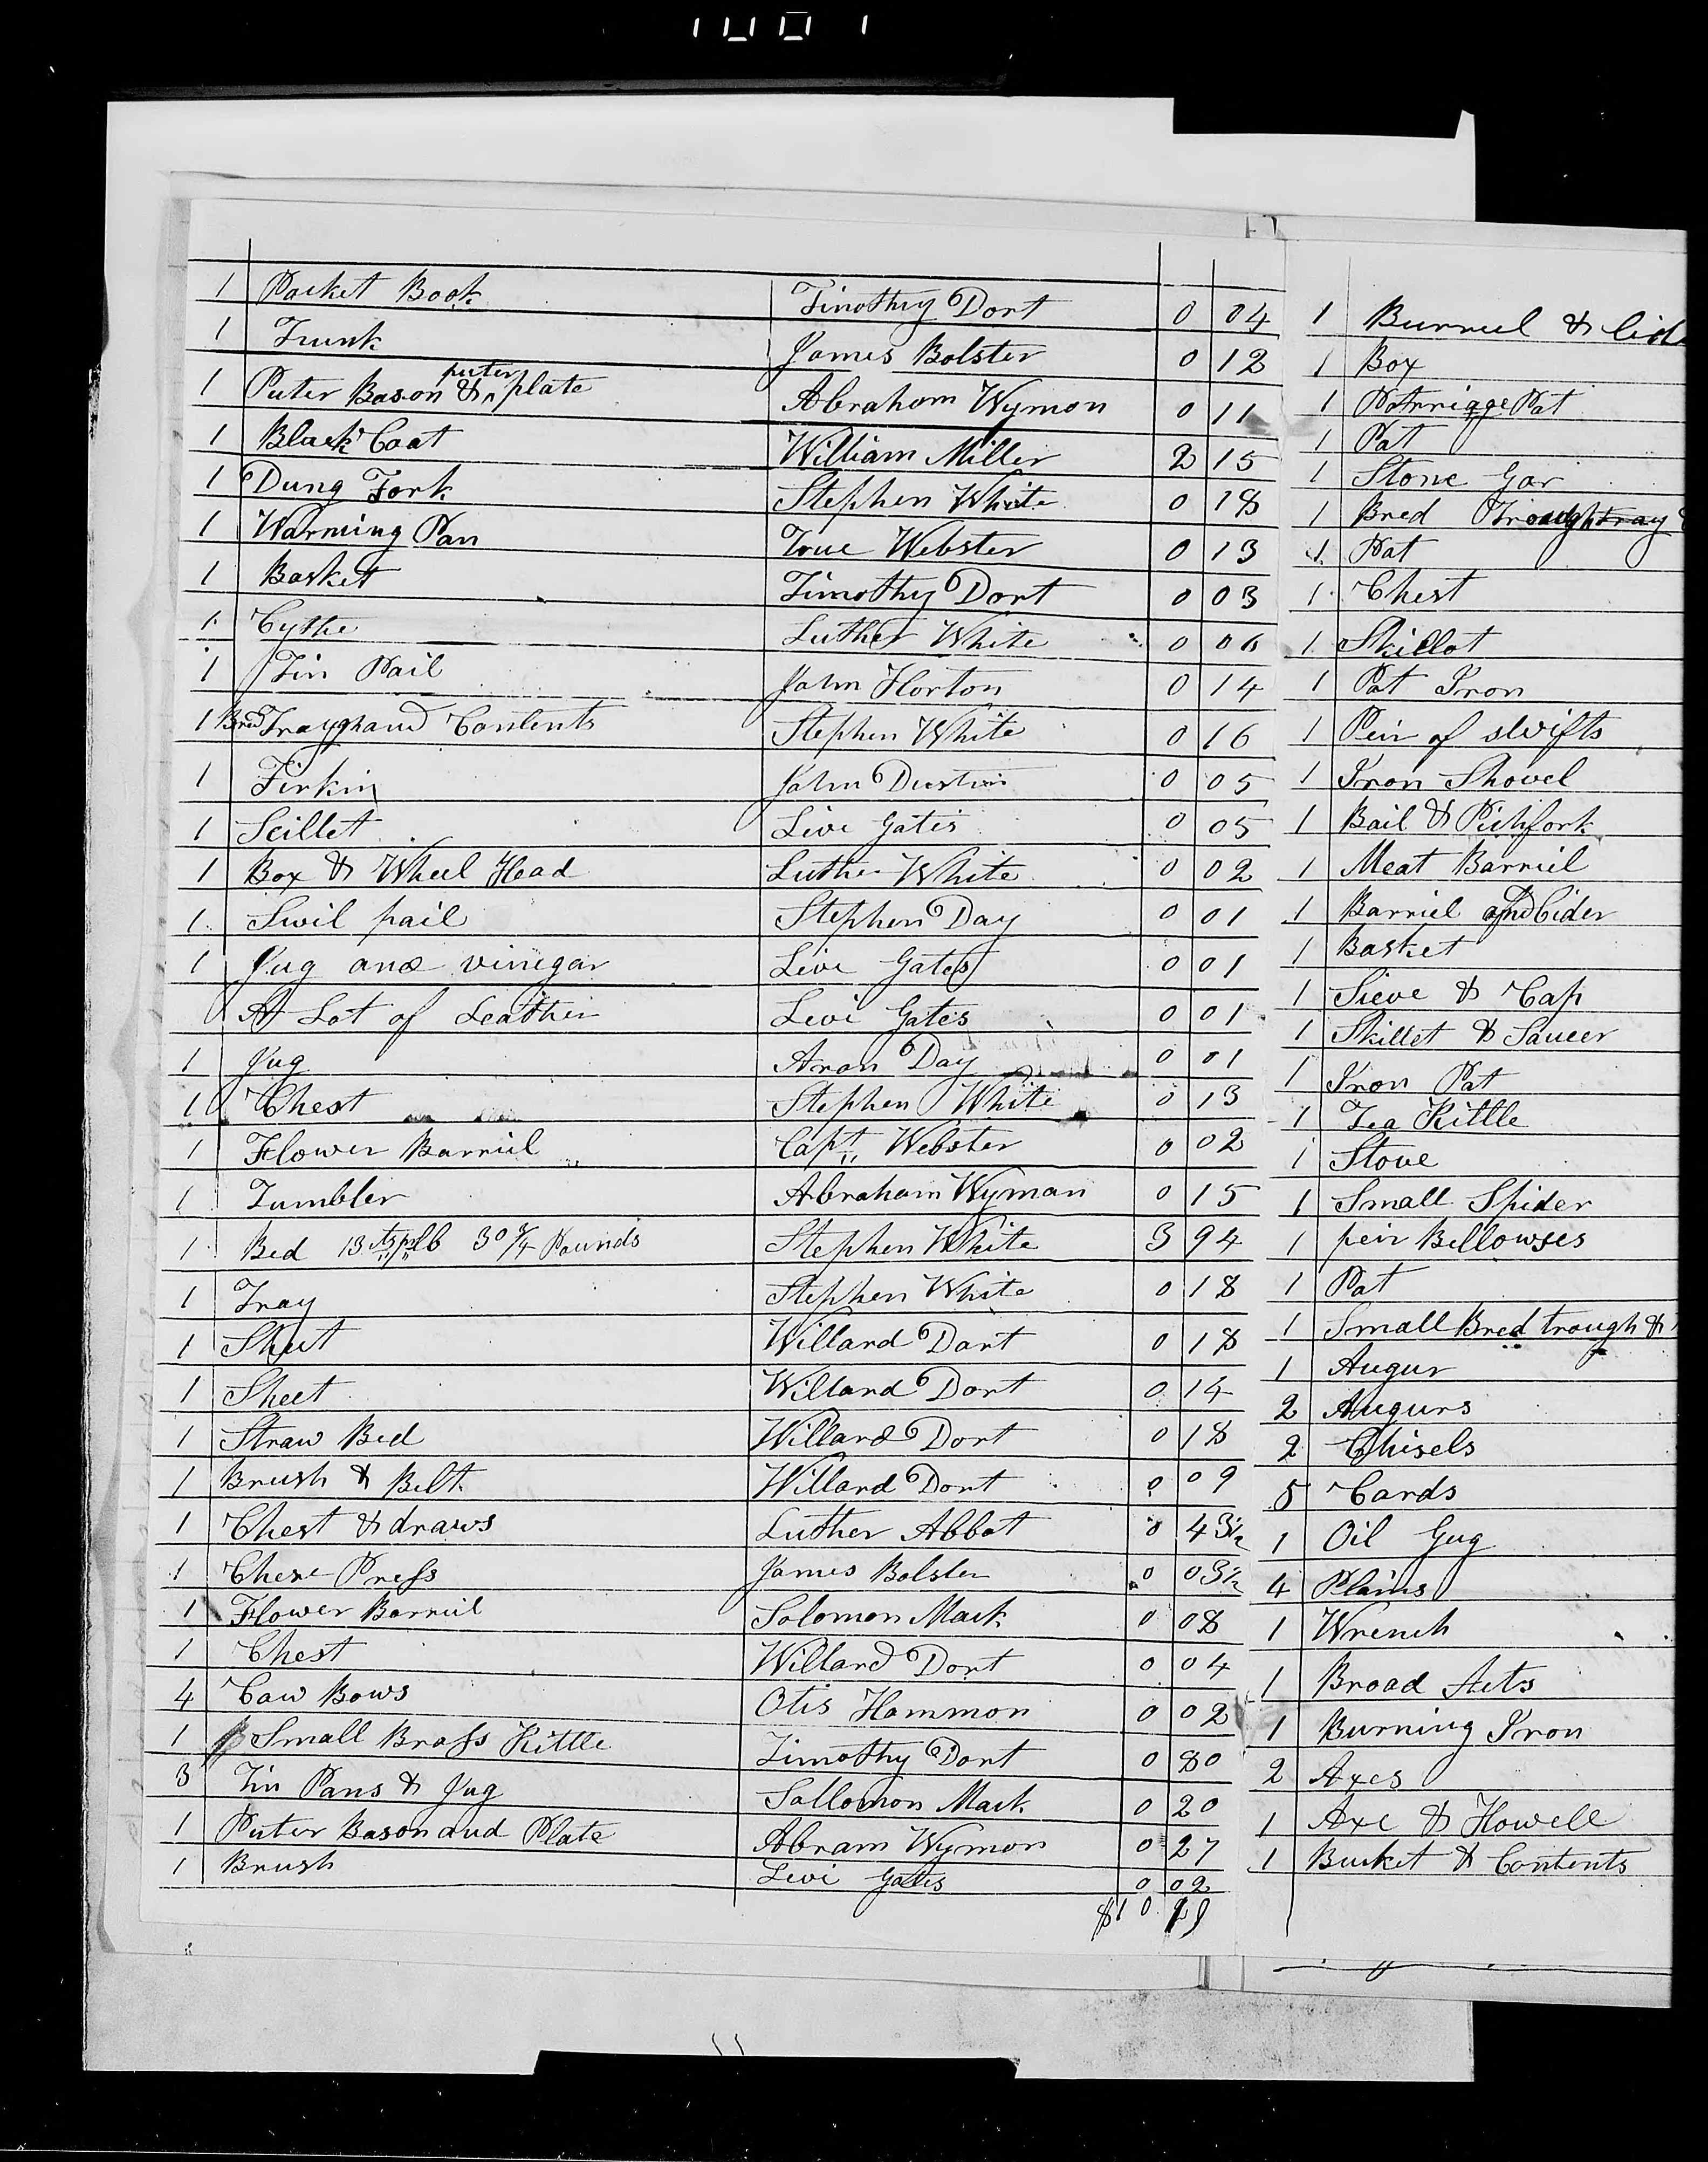 1 Pocket Book Timothy Dort 0 04
1 Trunk James Bolster 0 12
1 Puter Bason & puter plate Abraham Wymon 0 11
1 Black Coat William Miller 2 15
1 Dung Fork Stephen White 0 18
1 Warming Pan True Webster 0 13
1 Basket Timothy Dort 0 03
1 Cythe Luther White 0 06
1 Tin Pail John Horton 0 14
1 Bred Traygh and Contents Stephen White 0 16
1 Firkin John Dustin 0 05
1 Scillet Levi Gates 0 05
1 Box & Wheel Head Luther White 0 02
1 Swil pail Stephen Day 0 01
1 Jug and vinegar Levi Gates 0 01
A Lot of Leather Levi Gates 0 01
1 Jug Aron Day 0 01
1 Chest Stephen White 0 13
1 Flower Barriel Capt Webster 0 02
1 Tumbler Abraham Wyman 0 15
1 Bed 13 cts pr lb 30 3/4 Pounds Stephen White 3 94
1 Tray Stephen White 0 18
1 Sheet Willard Dart 0 18
1 Sheet Willard Dort 0 14
1 Straw Bed Willard Dort 0 18
1 Brush & Belt Willard Dort 0 09
1 Chest & draws Luther Abbot 0 43 1/2
1 Chese Press James Bolster 0 03 1/2
1 Flower Barriel Solomon Mack 0 08
1 Chest Willard Dort 0 04
4 Caw Bows Otis Hammon 0 02
1 Small Brass Kittle Timothy Dort 0 80
3 Tin Pans & Jug Sallomon Mack 0 20
1 Puter Bason and Plate Abram Wymon 0 27
1 Brush Levi Gates 0 02
$10 29
1 Burriel &
1 Box
1 Potrriage Pat
1 Pat
1 Stone Gar
1 Bred Trough tray
1 Pat
1 Chest
1 Skillot
1 Pat Iron
1 Peir of swifts
1 Iron Shovel
1 Bail & Pichfork
1 Meat Barriel
1 Barriel and Cider
1 Basket
1 Sieve & Cap
1 Skillet & Saucer
1 Iron Pat
1 Tea Kittle
1 Stove
1 Small Spider
1 peir Bellowses
1 Pat
1 Small Bred trough &
1 Augur
2 Augurs
2 Chisels
5 Cards
1 Oil Gug
4 Plains
1 Wrench
1 Broad Acts
1 Burning Iron
2 Axes
1 Axe & Howell
1 Bucket & Contents